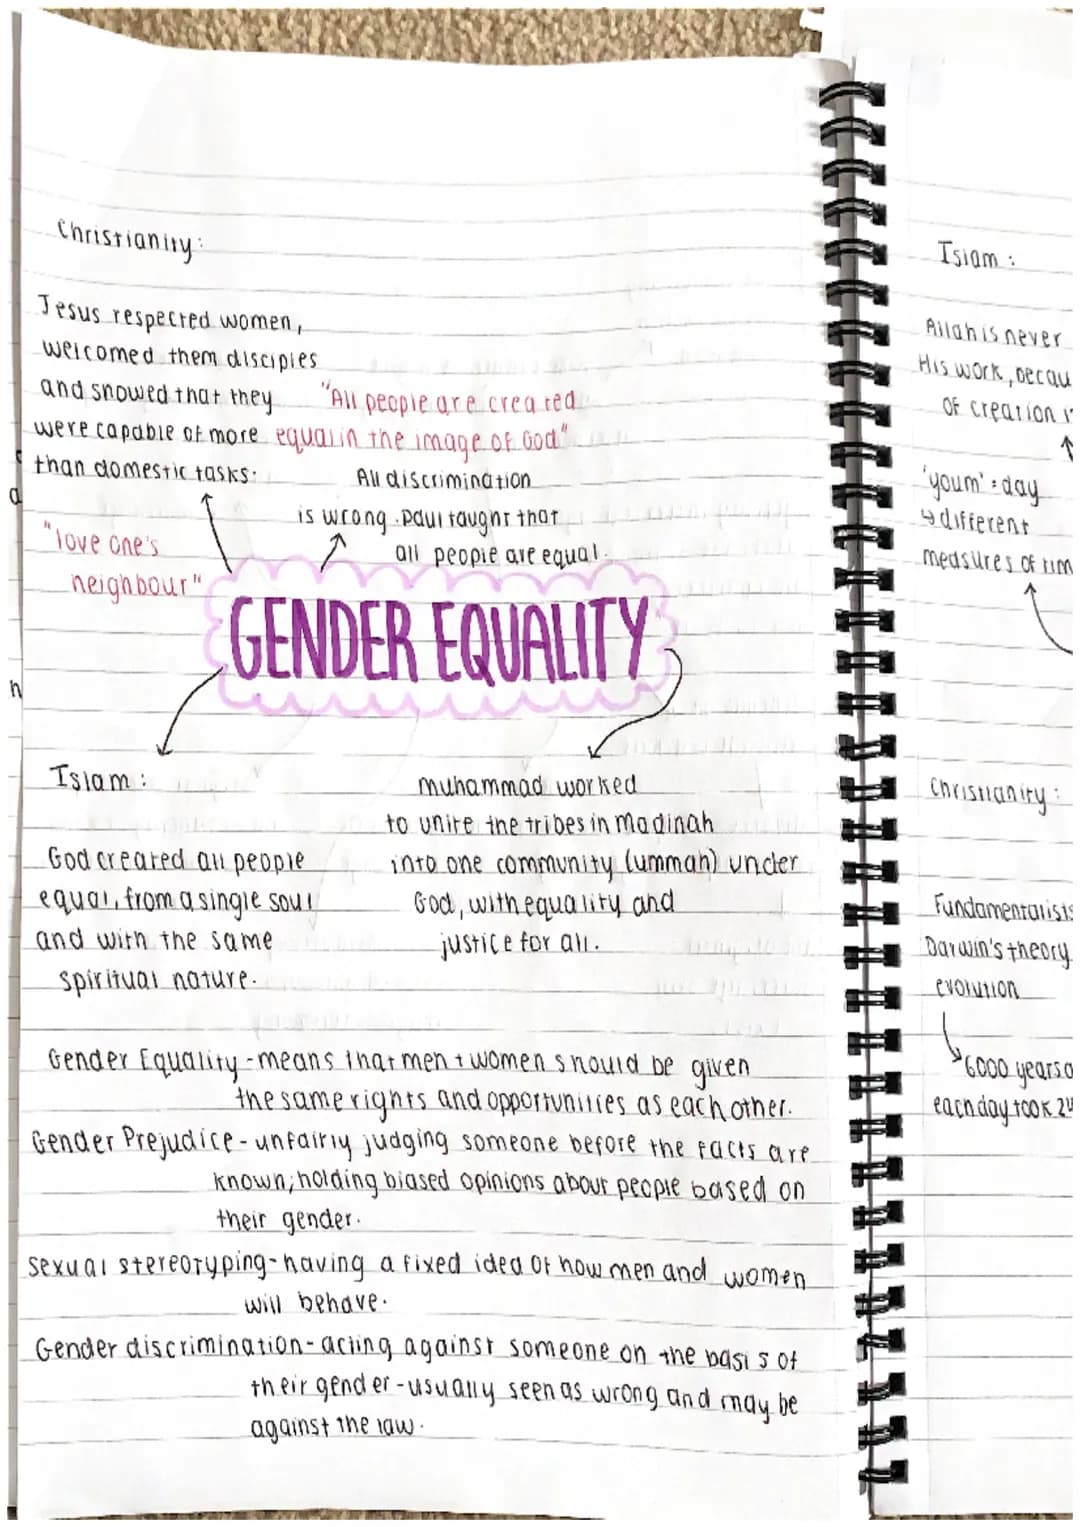 Christianity:
Jesus respected women,
welcomed them disciples
and showed that they
were capable of more
than domestic tasks.
"All people are created
equal in the image of God"
All discrimination
is wrong. Paul taught that
all people are equal.
"love one's
neighbour"
GENDER EQUALITY
Islam:
God created all people
equal, from a single soul
and with the same
spiritual nature.
muhammad worked
to unite the tribes in madinah
into one community (ummah) under
God, with equality and
justice for all.
Gender Equality - means that men + women should be given
the same rights and opportunities as each other.
Gender Prejudice - unfairly judging someone before the facts are
known; holding biased opinions about people based on
their gender.
Sexual stereotyping - having a fixed idea of how men and women
will behave.
Gender discrimination - acting against someone on the basis of
their gender - usually seen as wrong and may be
against the law.
Islam:
Allah is never
His work, becau
of creation i
'youm' = day
↳ different
measures of tim
Christianity:
Fundamentalists
Darwin's theory
evolution
6000 years a
each day took 24